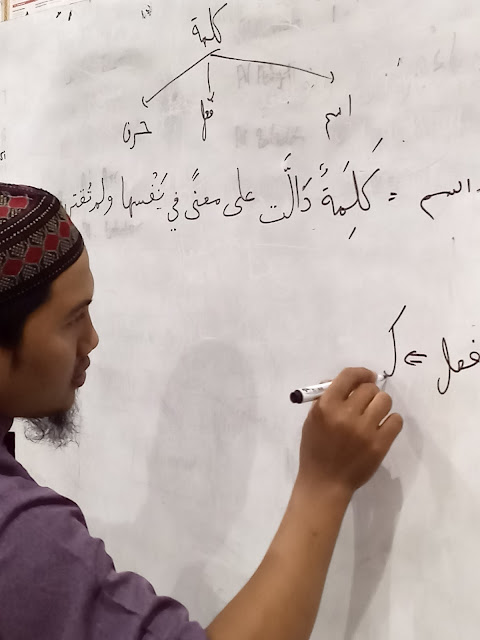 كلمة
اسم فعل حرف
اسم = كَلِمَةً دَالَّت على معنًى في نَفْسها ولم تقتر
فعل ⇐ ك